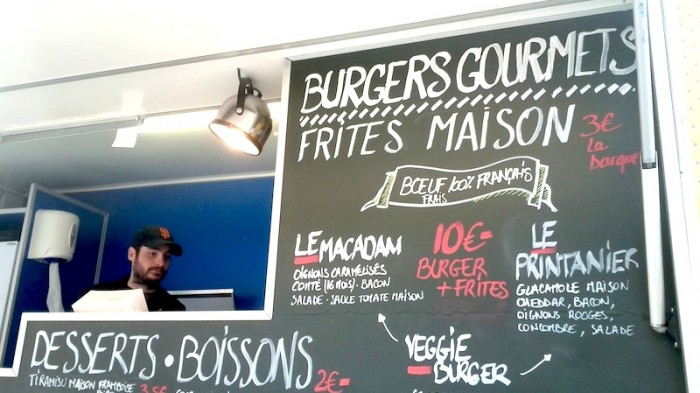 BURGERS GOURMETS
FRITES MAISON
3€
La
barque
BŒUF 100% FRANÇAIS
FRAIS
LE MACADAM
OIGNONS CARAMÉLISÉS
COMTÉ (16 MOIS) - BACON
SALADE - SAUCE TOMATE MAISON
10€
BURGER
+ FRITES
LE
PRINTANIER
GUACAMOLE MAISON
CHEDDAR, BACON,
OIGNONS ROUGES,
CONCOMBRE, SALADE
VEGGIE
BURGER
DESSERTS • BOISSONS
TIRAMISU MAISON FRAMBOISE
3,5€
2€